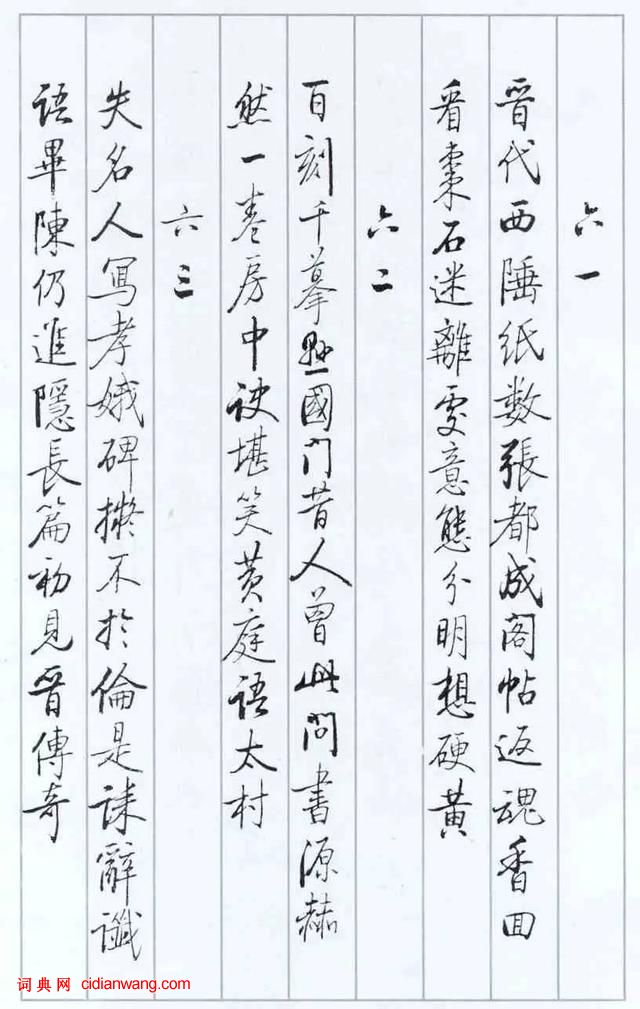 六一
晋代西陲紙数張都成閣帖返魂香回
看棗石迷離處意態分明想硬黄
六二
百刻千摹懸國门昔人曾此問書源赫
然一卷房中訣堪笑黄庭語太村
六三
失名人寫孝娥碑擬不於倫是誄辭讖
語畢陳仍進隱長篇初見晋傳奇
词典网 cidianwang.com